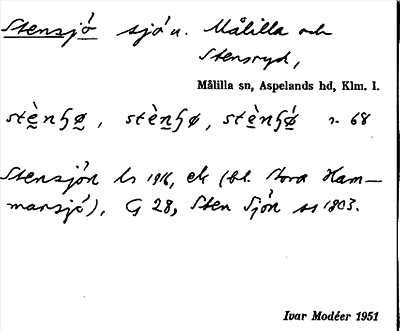 Stensjö sjö n. Målilla och
Stensryd,
Målilla sn, Aspelands hd, Klm. l.
stènɧø, stènɧø, stènɧǿ r. 68
Stensjön ls 1916, ek (bl. Stora Ham–
marsjö), G 28, Sten Sjön 1803.
Ivar Modéer 1951